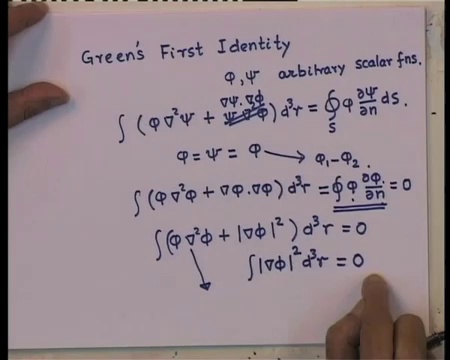 Green's First Identity
φ, ψ arbitrary scalar fns.
∇ψ.∇φ
∫ (φ∇²ψ + ψ∇²φ) d³r = ∮_S φ ∂ψ/∂n ds.
φ = ψ = φ → φ₁-φ₂.
∫ (φ∇²φ + ∇φ.∇φ) d³r = ∮ φ. ∂φ/∂n = 0
∫ (φ∇²φ + |∇φ|²) d³r = 0
∫ |∇φ|² d³r = 0